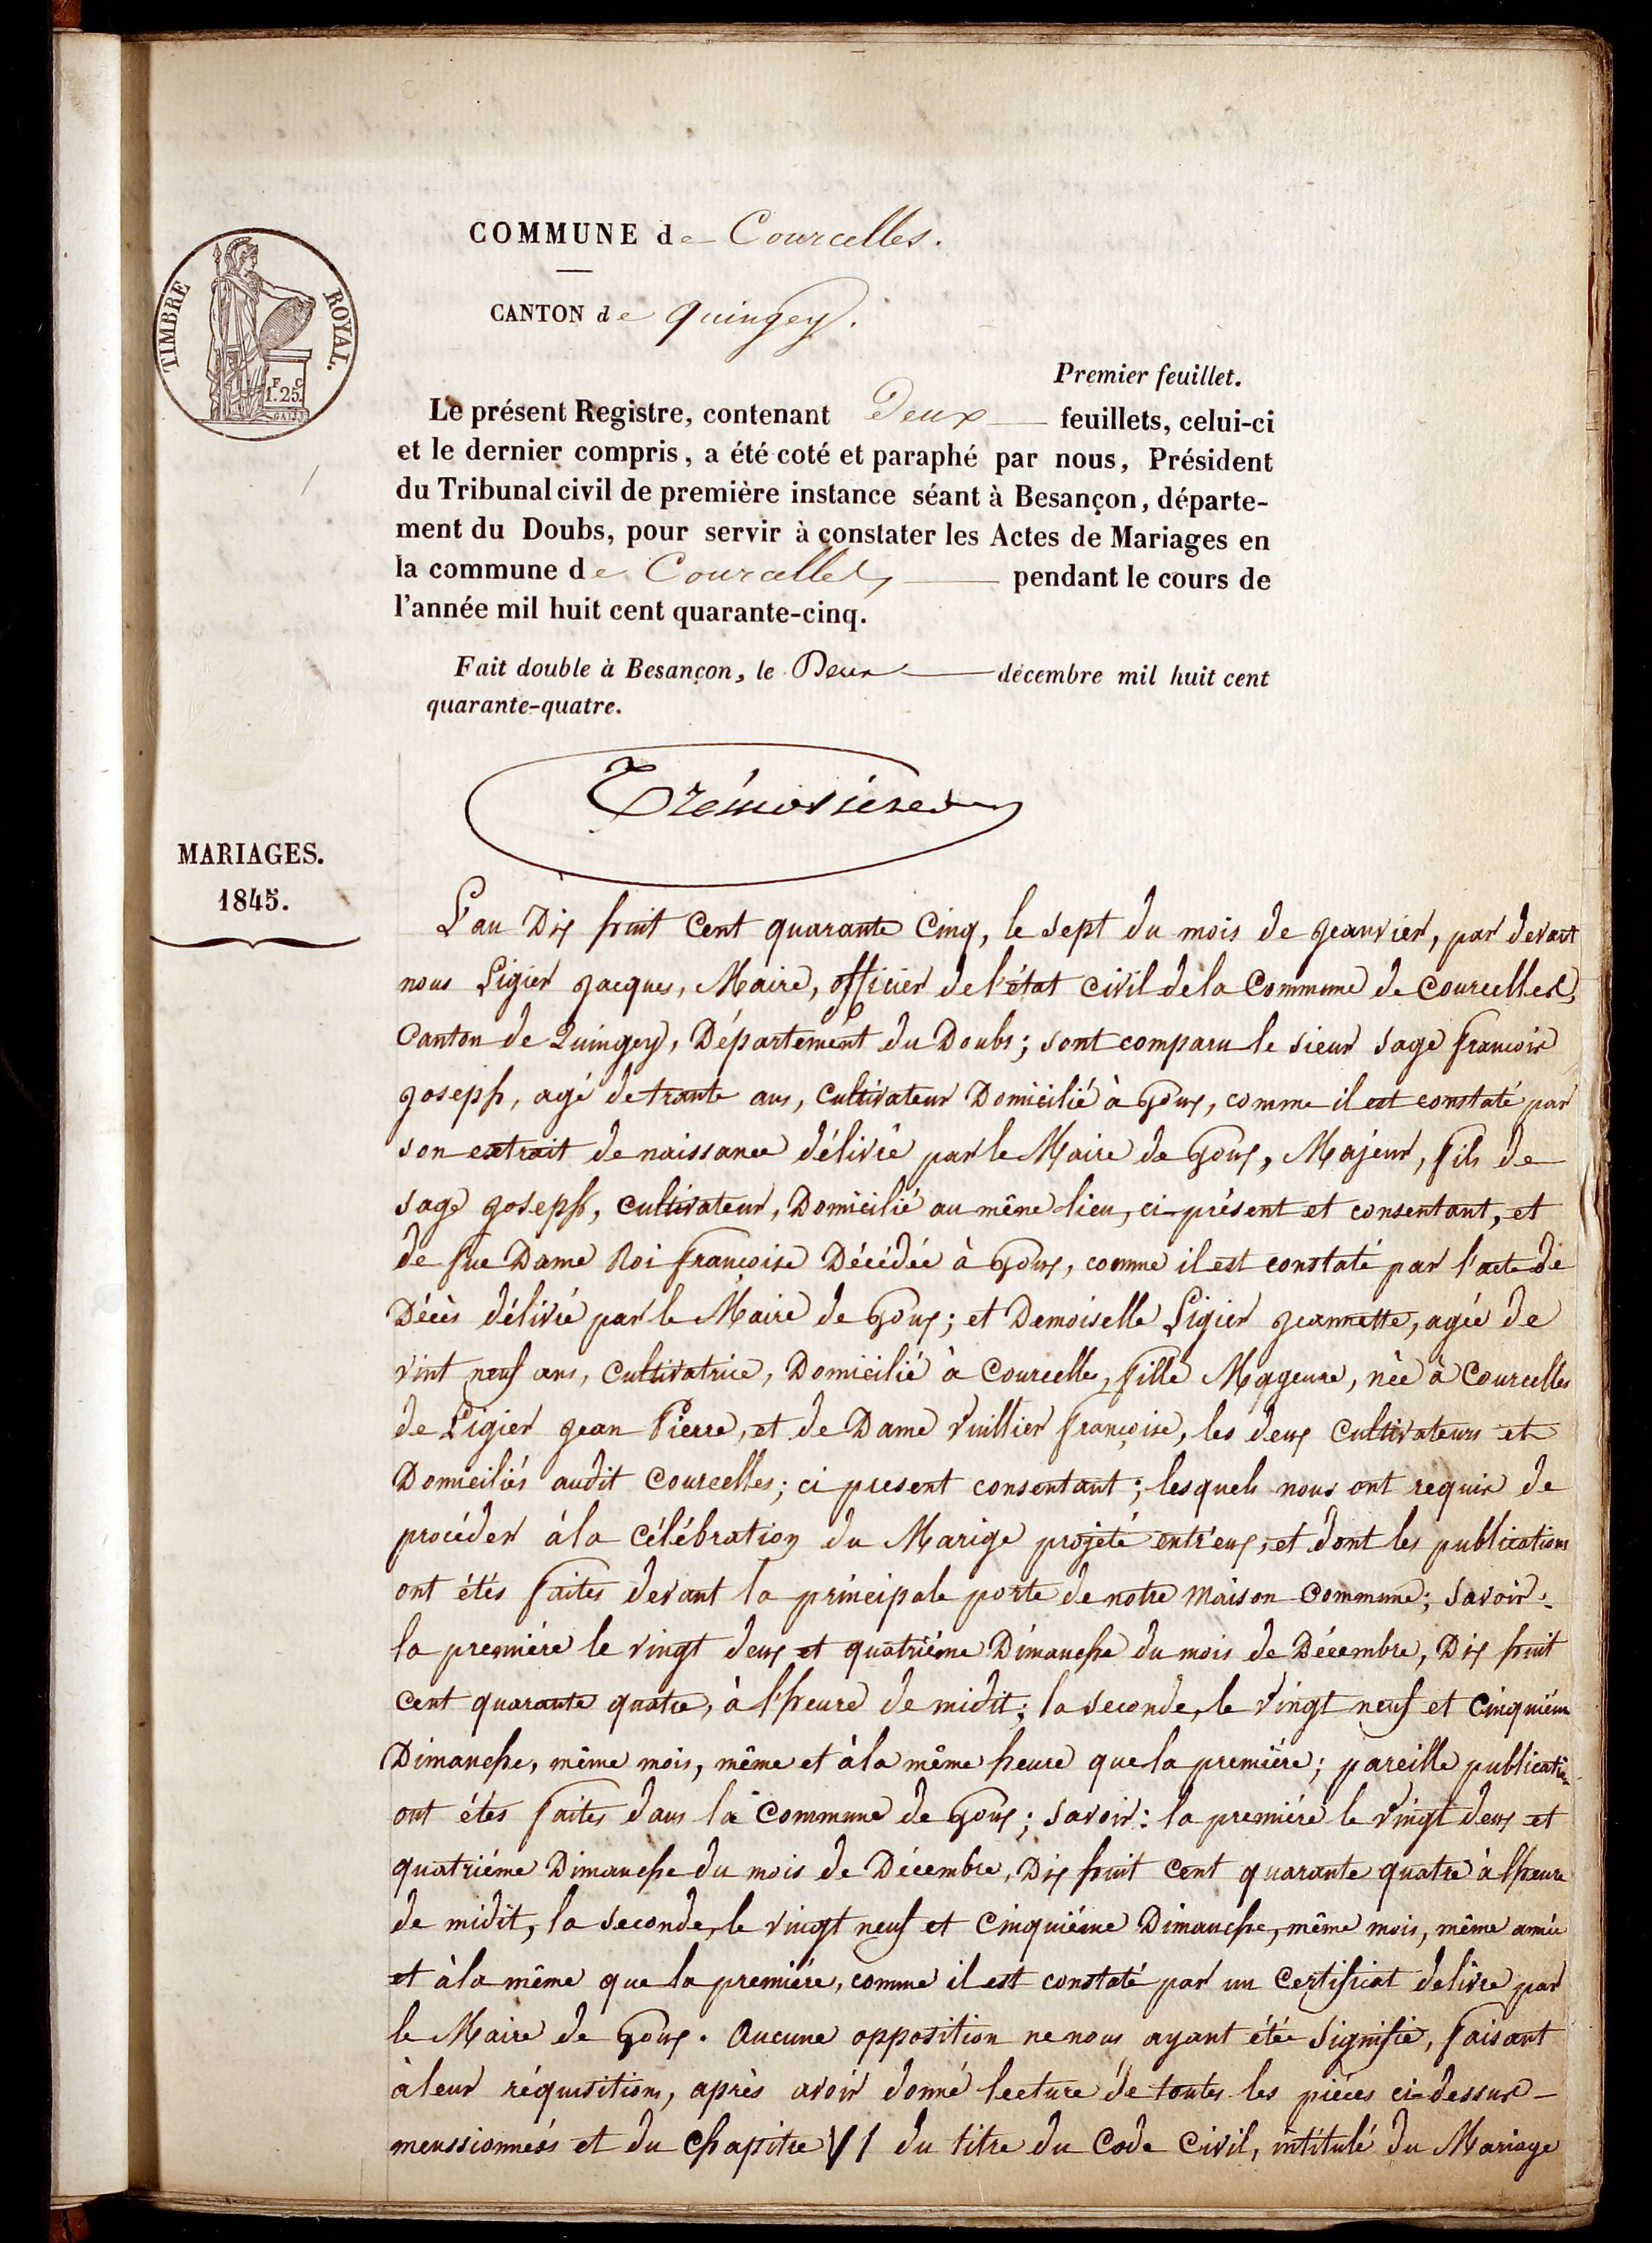 COMMUNE de Courcelles.
CANTON de quingey.
TIMBRE ROYAL.
1F. 25c
Premier feuillet.
Le présent Registre, contenant Deux feuillets, celui-ci
et le dernier compris, a été coté et paraphé par nous, Président
du Tribunal civil de première instance séant à Besançon, départe-
ment du Doubs, pour servir à constater les Actes de Mariages en
la commune de Courcelles pendant le cours de
l'année mil huit cent quarante-cinq.
Fait double à Besançon, le Deux décembre mil huit cent
quarante-quatre.
MARIAGES.
1845.
L'an Dix huit Cent quarante Cinq, le sept du mois de jeanvier, par devant
nous Ligier jacques, Maire, officier de l'état civil de la Commune de Courcelles,
Canton de Quingey, Département du Doubs; sont comparu le sieur Sage françois
joseph, agé de trante ans, cultivateur Domicilié à Goux, comme il est constaté par
son extrait de naissance délivré par le Maire de Goux, Majeur, fils de
Sage joseph, cultivateur, Domicilié au même lieu, ci-présent et consentant, et
de fue Dame Roi françoise Décédée à Goux, comme il est constaté par l'acte de
Décès délivré par le Maire de Goux; et Demoiselle Ligier jeannette, agée de
vint neuf ans, cultivatrice, Domicilié à Courcelles, fille Mageure, née à Courcelles
de Ligier jean Pierre, et de Dame Vuillier françoise, les deux cultivateurs et
Domiciliés audit Courcelles; ci present consentant; lesquels nous ont requis de
procéder à la célébration du Marige projeté entr'eux, et dont les publications
ont étés faites devant la principale porte de notre maison commune; savoir:
la première le vingt deux et quatrième Dimanche du mois de Décembre, Dix huit
cent quarante quatre, à l'heure de midit; la seconde, le vingt neuf et cinquième
Dimanche, même mois, même et à la même heure que la première; pareille publication
ont étes faites dans la Commune de Goux; savoir: la première le vingt deux et
quatrième Dimanche du mois de Décembre, Dix huit cent quarante quatre à l'heure
de midit, la seconde, le vingt neuf et cinquième Dimanche, même mois, même année
et à la même que la première, comme il est constaté par un certificat delivre par
le Maire de Goux. Aucune opposition ne nous ayant étée signifie, faisant
à leur réquisitions, après avoir donné lecture de toutes les pièces ci-dessus-
menssionneés et du chapitre VI du titre du Code Civil, intitulé du Mariage